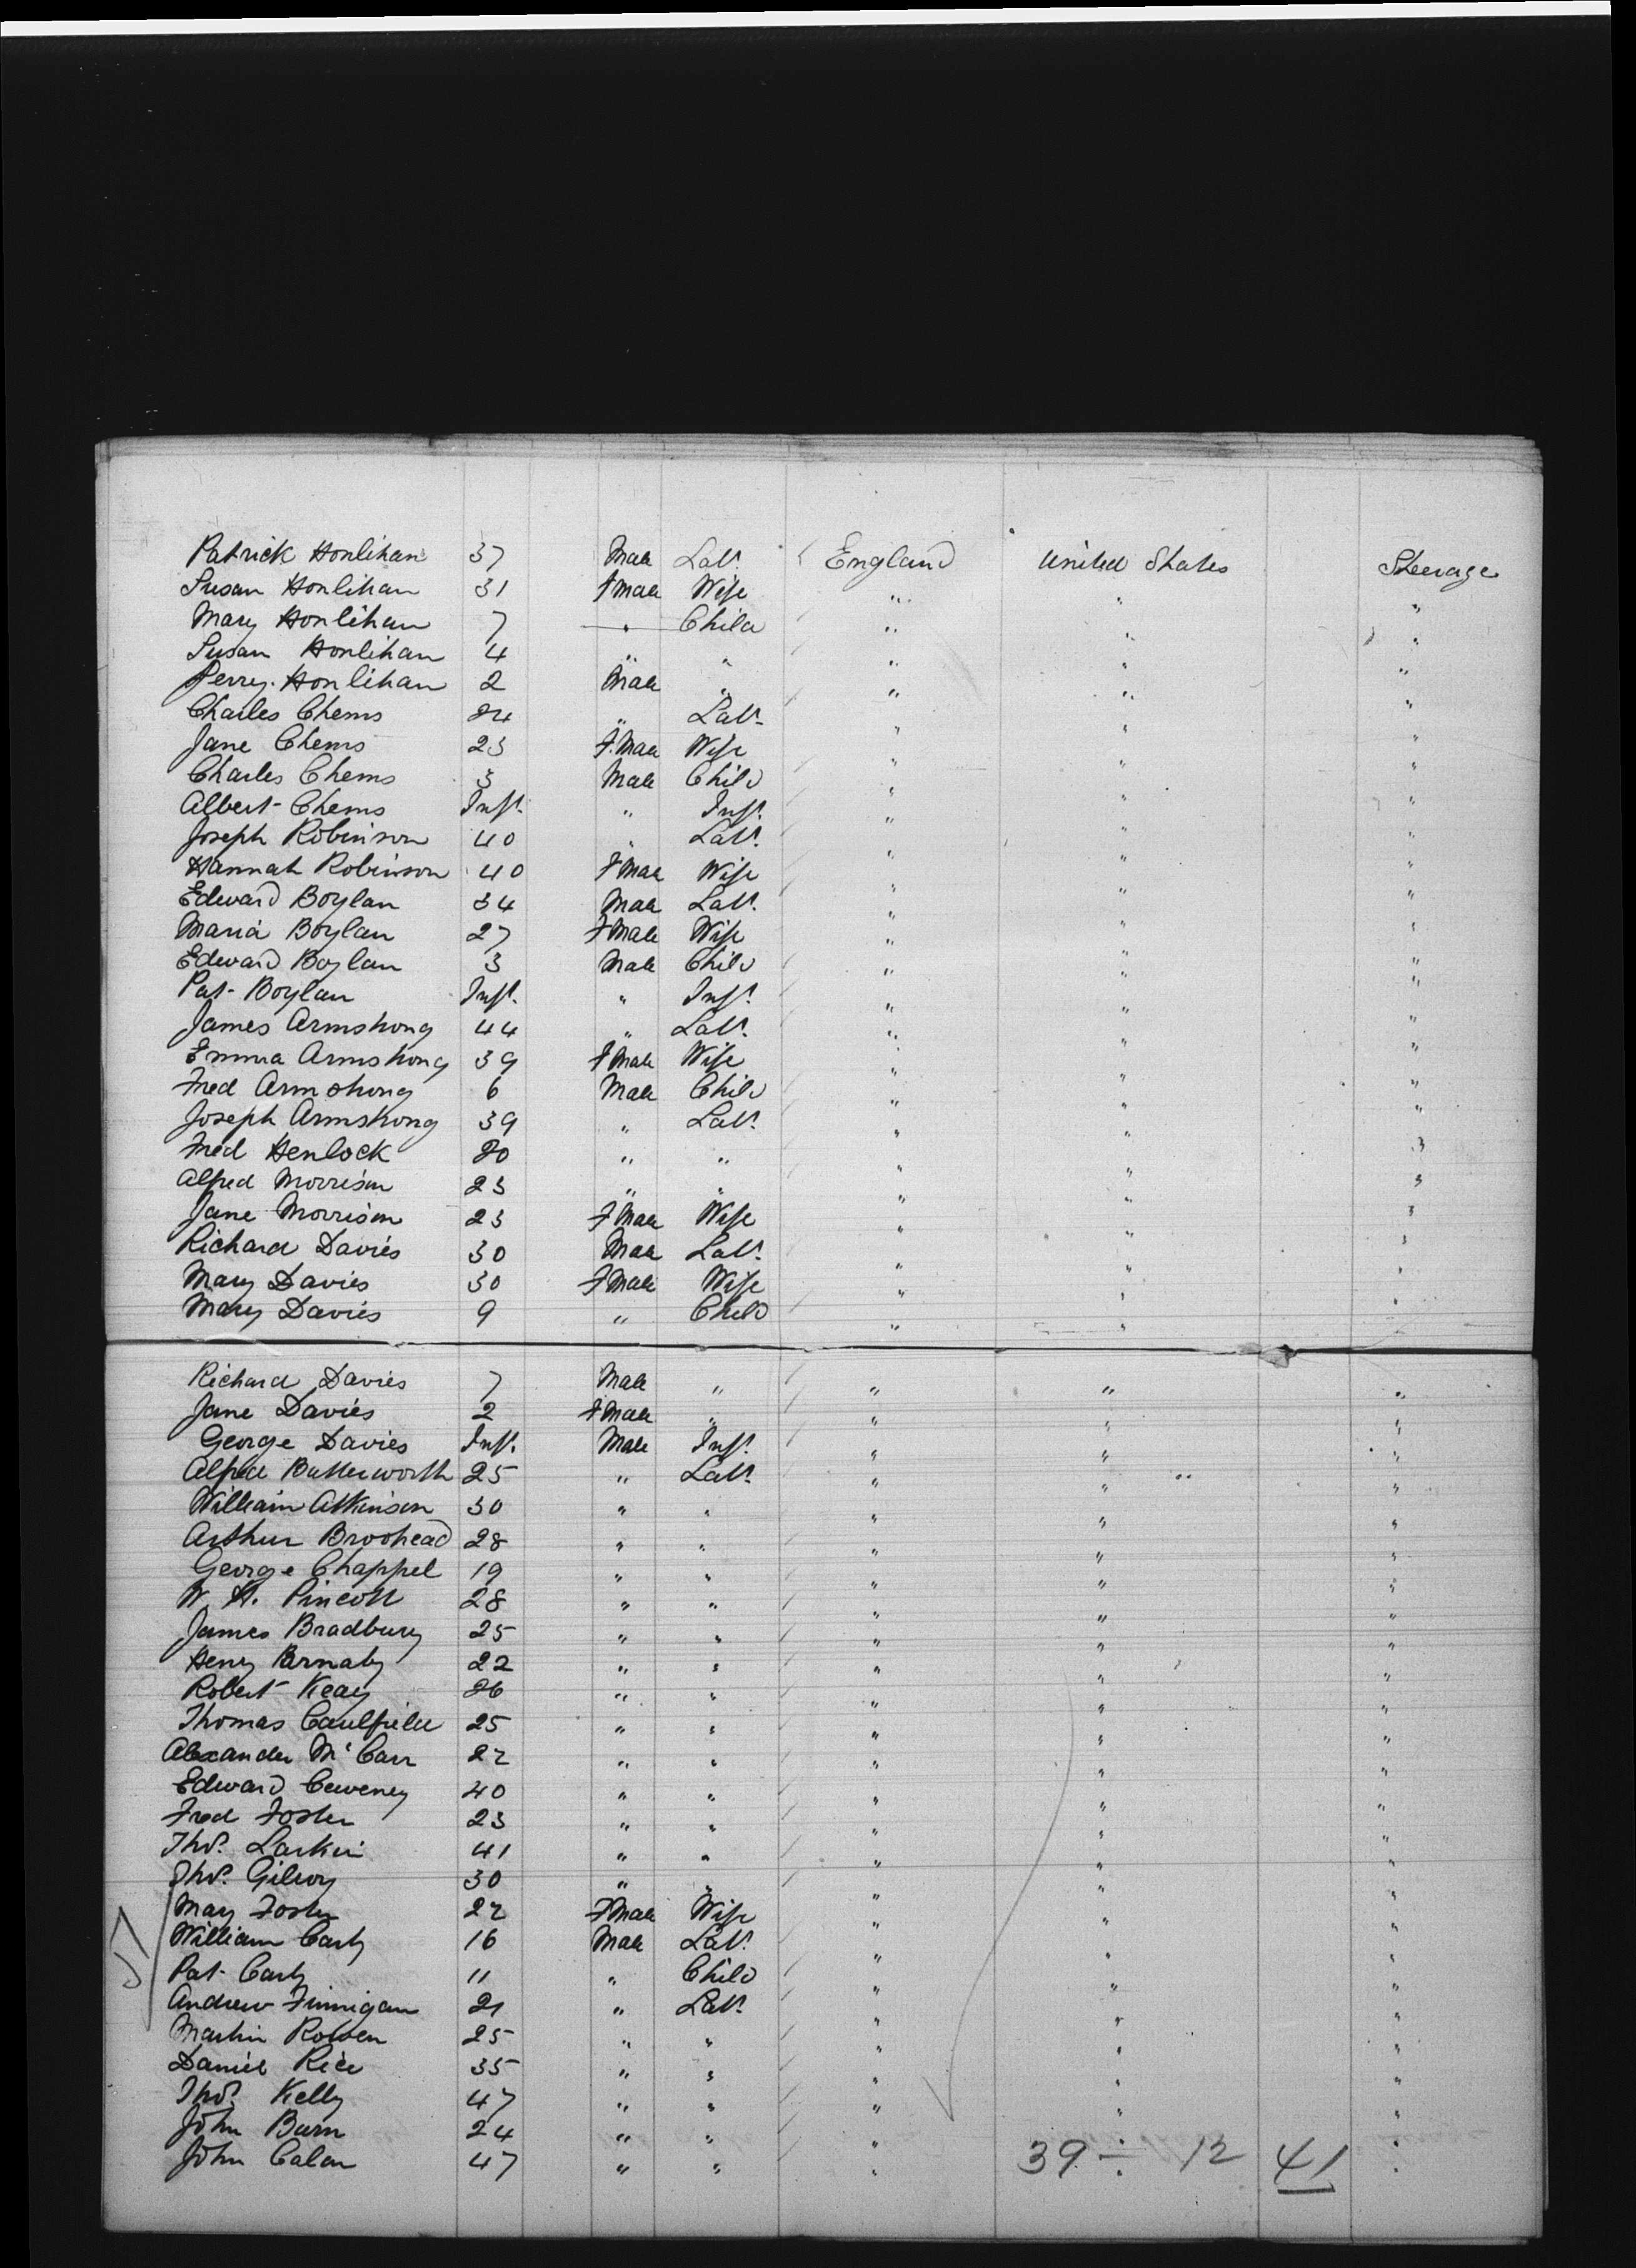 Patrick Honlihan 37 Male Labr. England United States Steerage
Susan Honlihan 31 Fmale Wife " " "
Mary Honlihan 7 " Child " " "
Susan Honlihan 4 " " " " "
Perrey. Honlihan 2 Male " " " "
Charles Chems 24 " Labr. " " "
Jane Chems 23 F.Male Wife " " "
Charles Chems 3 Male Child " " "
Albert Chems Inft. " Inft. " " "
Joseph Robinson 40 " Labr. " " "
Hannah Robinson 40 FMale Wife " " "
Edward Boylan 34 Male Labr. " " "
Maria Boylan 27 FMale Wife " " "
Edward Boylan 3 Male Child " " "
Pat Boylan Inft. " Inft. " " "
James Armstrong 44 " Labr. " " "
Emma Armstrong 39 FMale Wife " " "
Fred Armstrong 6 Male Child " " "
Joseph Armstrong 39 " Labr. " " "
Fred Henlock 20 " " " " "
Alfred Morrison 23 " " " " "
Jane Morrison 23 FMale Wife " " "
Richard Davies 30 Male Labr. " " "
Mary Davies 30 FMale Wife " " "
Mary Davies 9 " Child " " "
Richard Davies 7 Male " " " "
Jane Davies 2 FMale " " " "
George Davies Inft. Male Inft. " " "
Alfred Butterworth 25 " Labr. " " "
William Atkinson 30 " " " " "
Arthur Broohead 28 " " " " "
George Chappel 19 " " " " "
W. H. Pincott 28 " " " " "
James Bradbury 25 " " " " "
Henry Barnaby 22 " " " " "
Robert Keay 26 " " " " "
Thomas Caulfield 25 " " " " "
Alexander McCarr 22 " " " " "
Edward Ceweney 40 " " " " "
Fred Foster 23 " " " " "
Thos. Larkin 41 " " " " "
Thos. Gilroy 30 " " " " "
Mary Foster 22 FMale Wife " " "
William Carty 16 Male Labr. " " "
Pat Carty 11 " Child " " "
Andrew Finnigan 21 " Labr. " " "
Martin Rowen 25 " " " " "
Daniel Rice 35 " " " " "
Thos. Kelly 47 " " " " "
John Burn 24 " " " " "
John Calan 47 " " " " "
39 ÷ 12 41